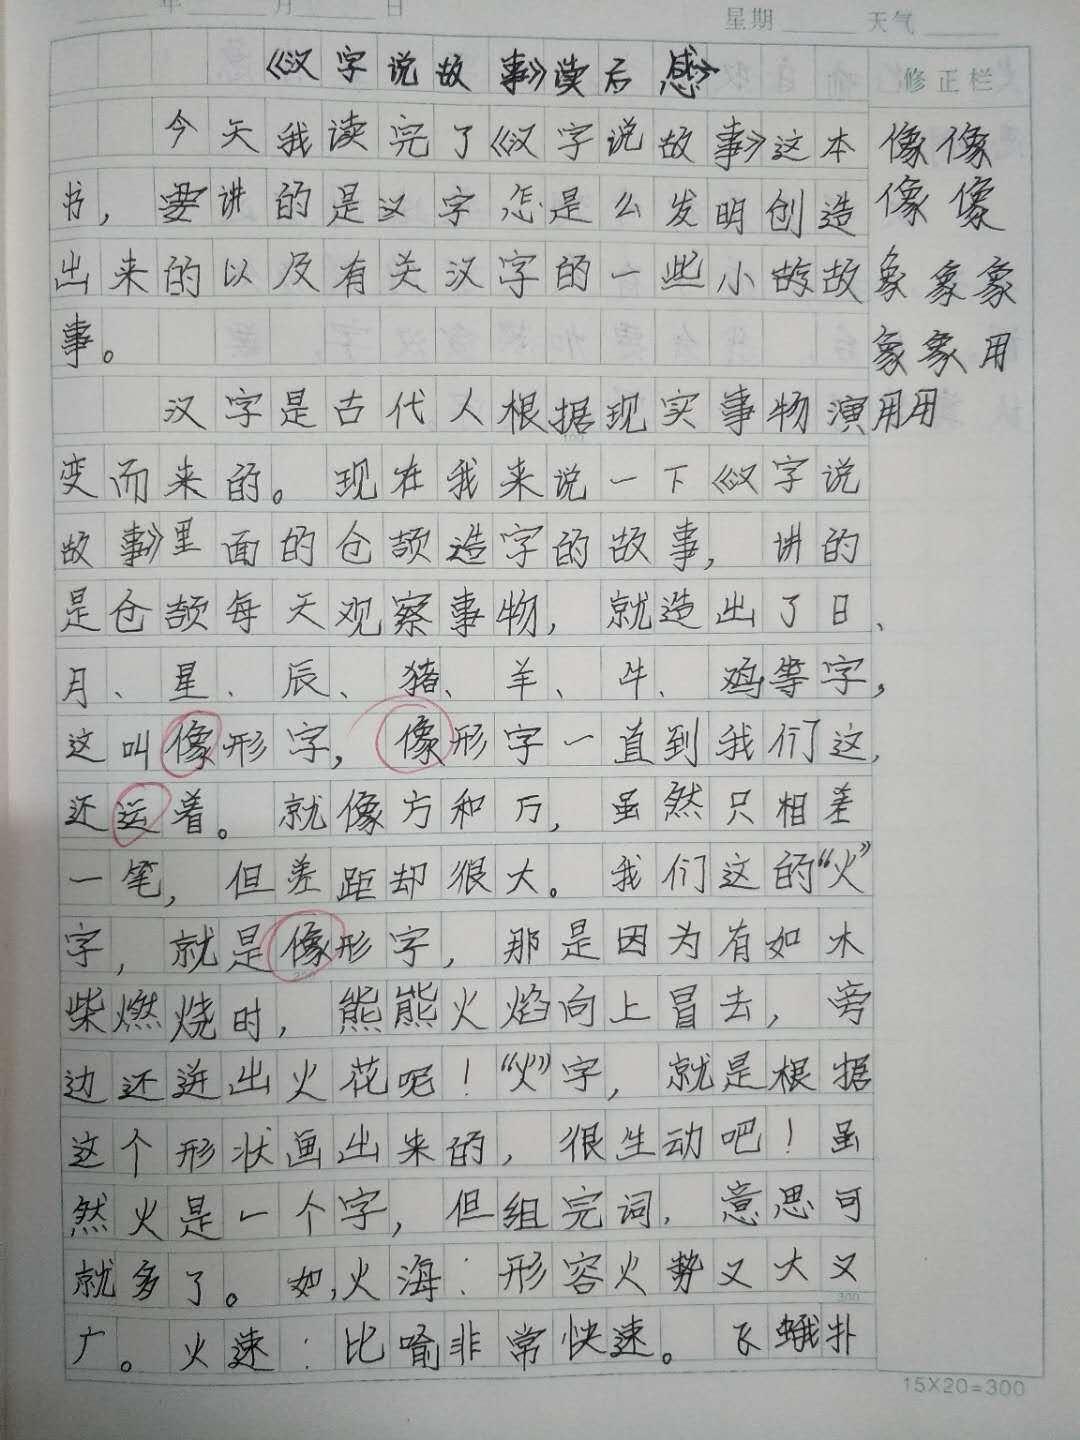 年 月 日 星期 天气
《汉字说故事》读后感
修正栏
今天我读完了《汉字说故事》这本
书，要讲的是汉字怎是么发明创造
出来的以及有关汉字的一些小故故
事。
汉字是古代人根据现实事物演
变而来的。现在我来说一下《汉字说
故事》里面的仓颉造字的故事，讲的
是仓颉每天观察事物，就造出了日、
月、星、辰、猪、羊、牛、鸡等字，
这叫像形字，像形字一直到我们这，
还运着。就像方和万，虽然只相差
一笔，但差距却很大。我们这的“火”
字，就是像形字，那是因为有如木
柴燃烧时，熊熊火焰向上冒去，旁
边还迸出火花呢！“火”字，就是根据
这个形状画出来的，很生动吧！虽
然火是一个字，但组完词，意思可
就多了。如，火海：形容火势又大又
广。火速：比喻非常快速。飞蛾扑
像像
像像
象象象
象象用
用用
300
15X20=300